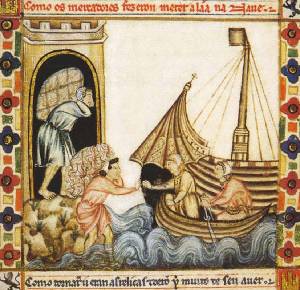 Como os mercadores fezeron meter a lãa na nave.
Como tomar u eran as relicas todo o muito de seu aver.